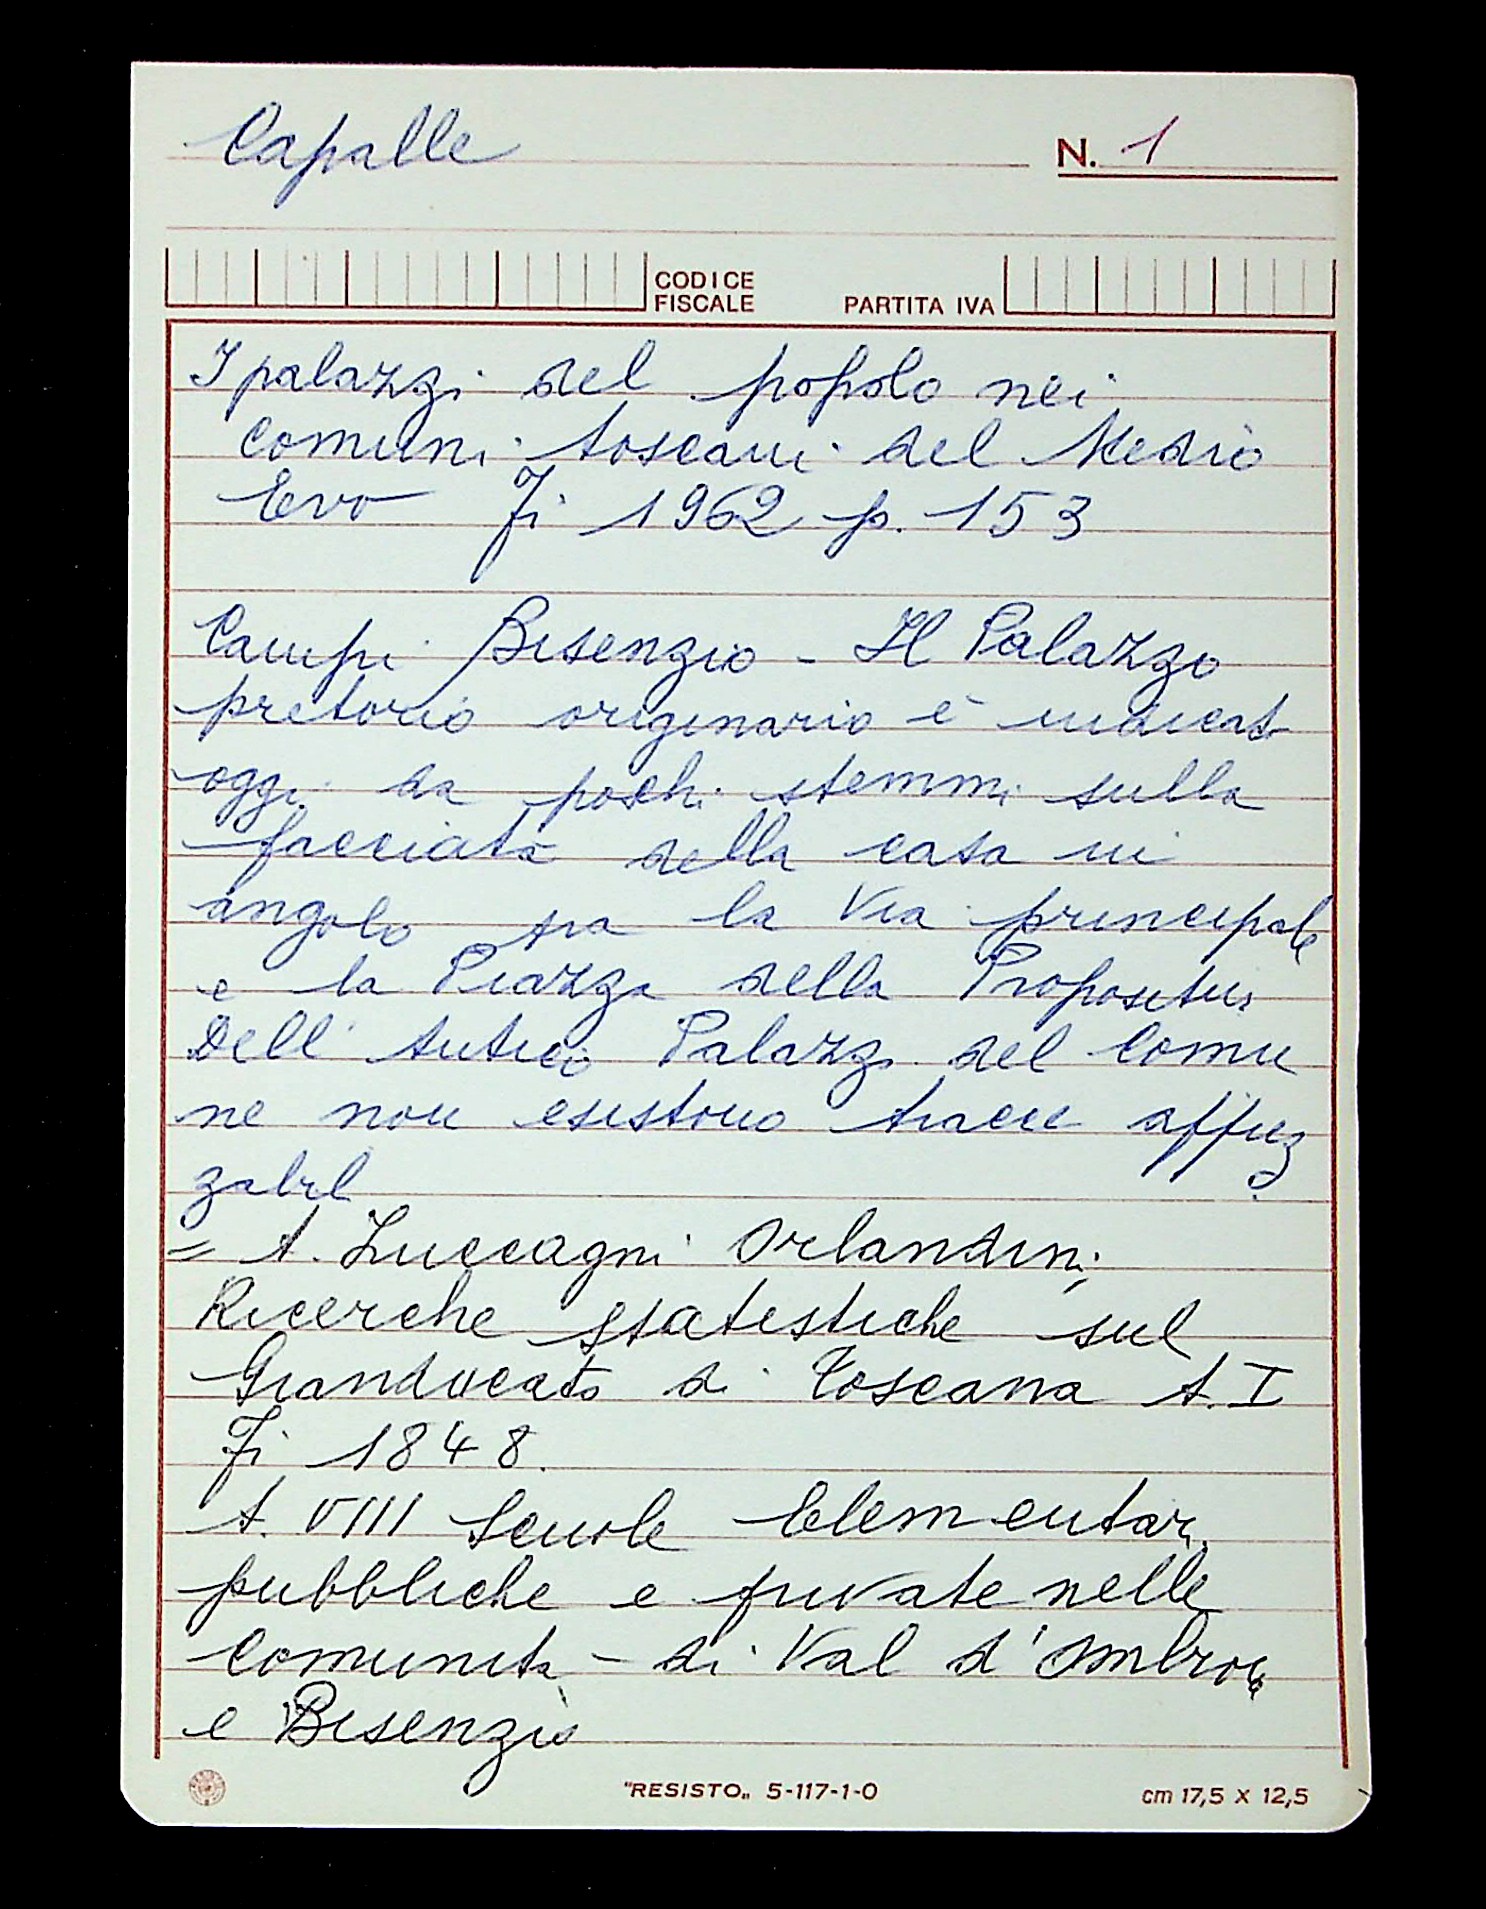 Capalle
N. 1
CODICE
FISCALE
PARTITA IVA
I palazzi del popolo nei
comuni toscani del Medio
Evo Fi 1962 p. 153
Campi Bisenzio - Il Palazzo
pretorio originario è indicato
oggi da pochi stemmi sulla
facciata della casa in
angolo tra la Via principale
e la Piazza della Propositura
Dell'Antico Palazzo del Comu
ne non esistono tracce apprez
zabil
= A. Zuccagni Orlandini,
Ricerche statistiche sul
Granducato di Toscana t. I
Fi 1848.
t. VIII Scuole Elementari
pubbliche e private nelle
Comunità - di Val d'Ombrone
e Bisenzio
"RESISTO„ 5-117-1-0
cm 17,5 x 12,5